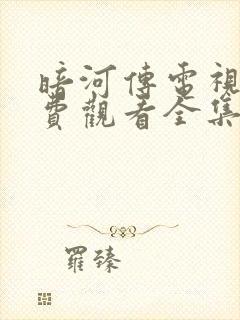 暗河傳電視
費觀看全集
羅臻